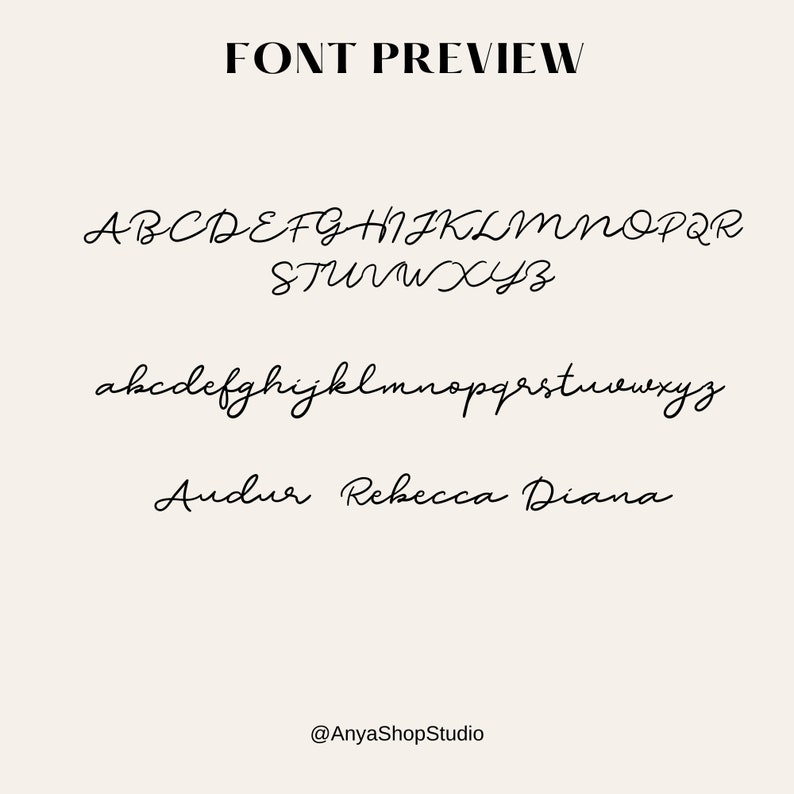 FONT PREVIEW
ABCDEFGHIJKLMNOPQR
STUVWXYZ
abcdefghijklmnopqrstuvwxyz
Audur Rebecca Diana
@AnyaShopStudio